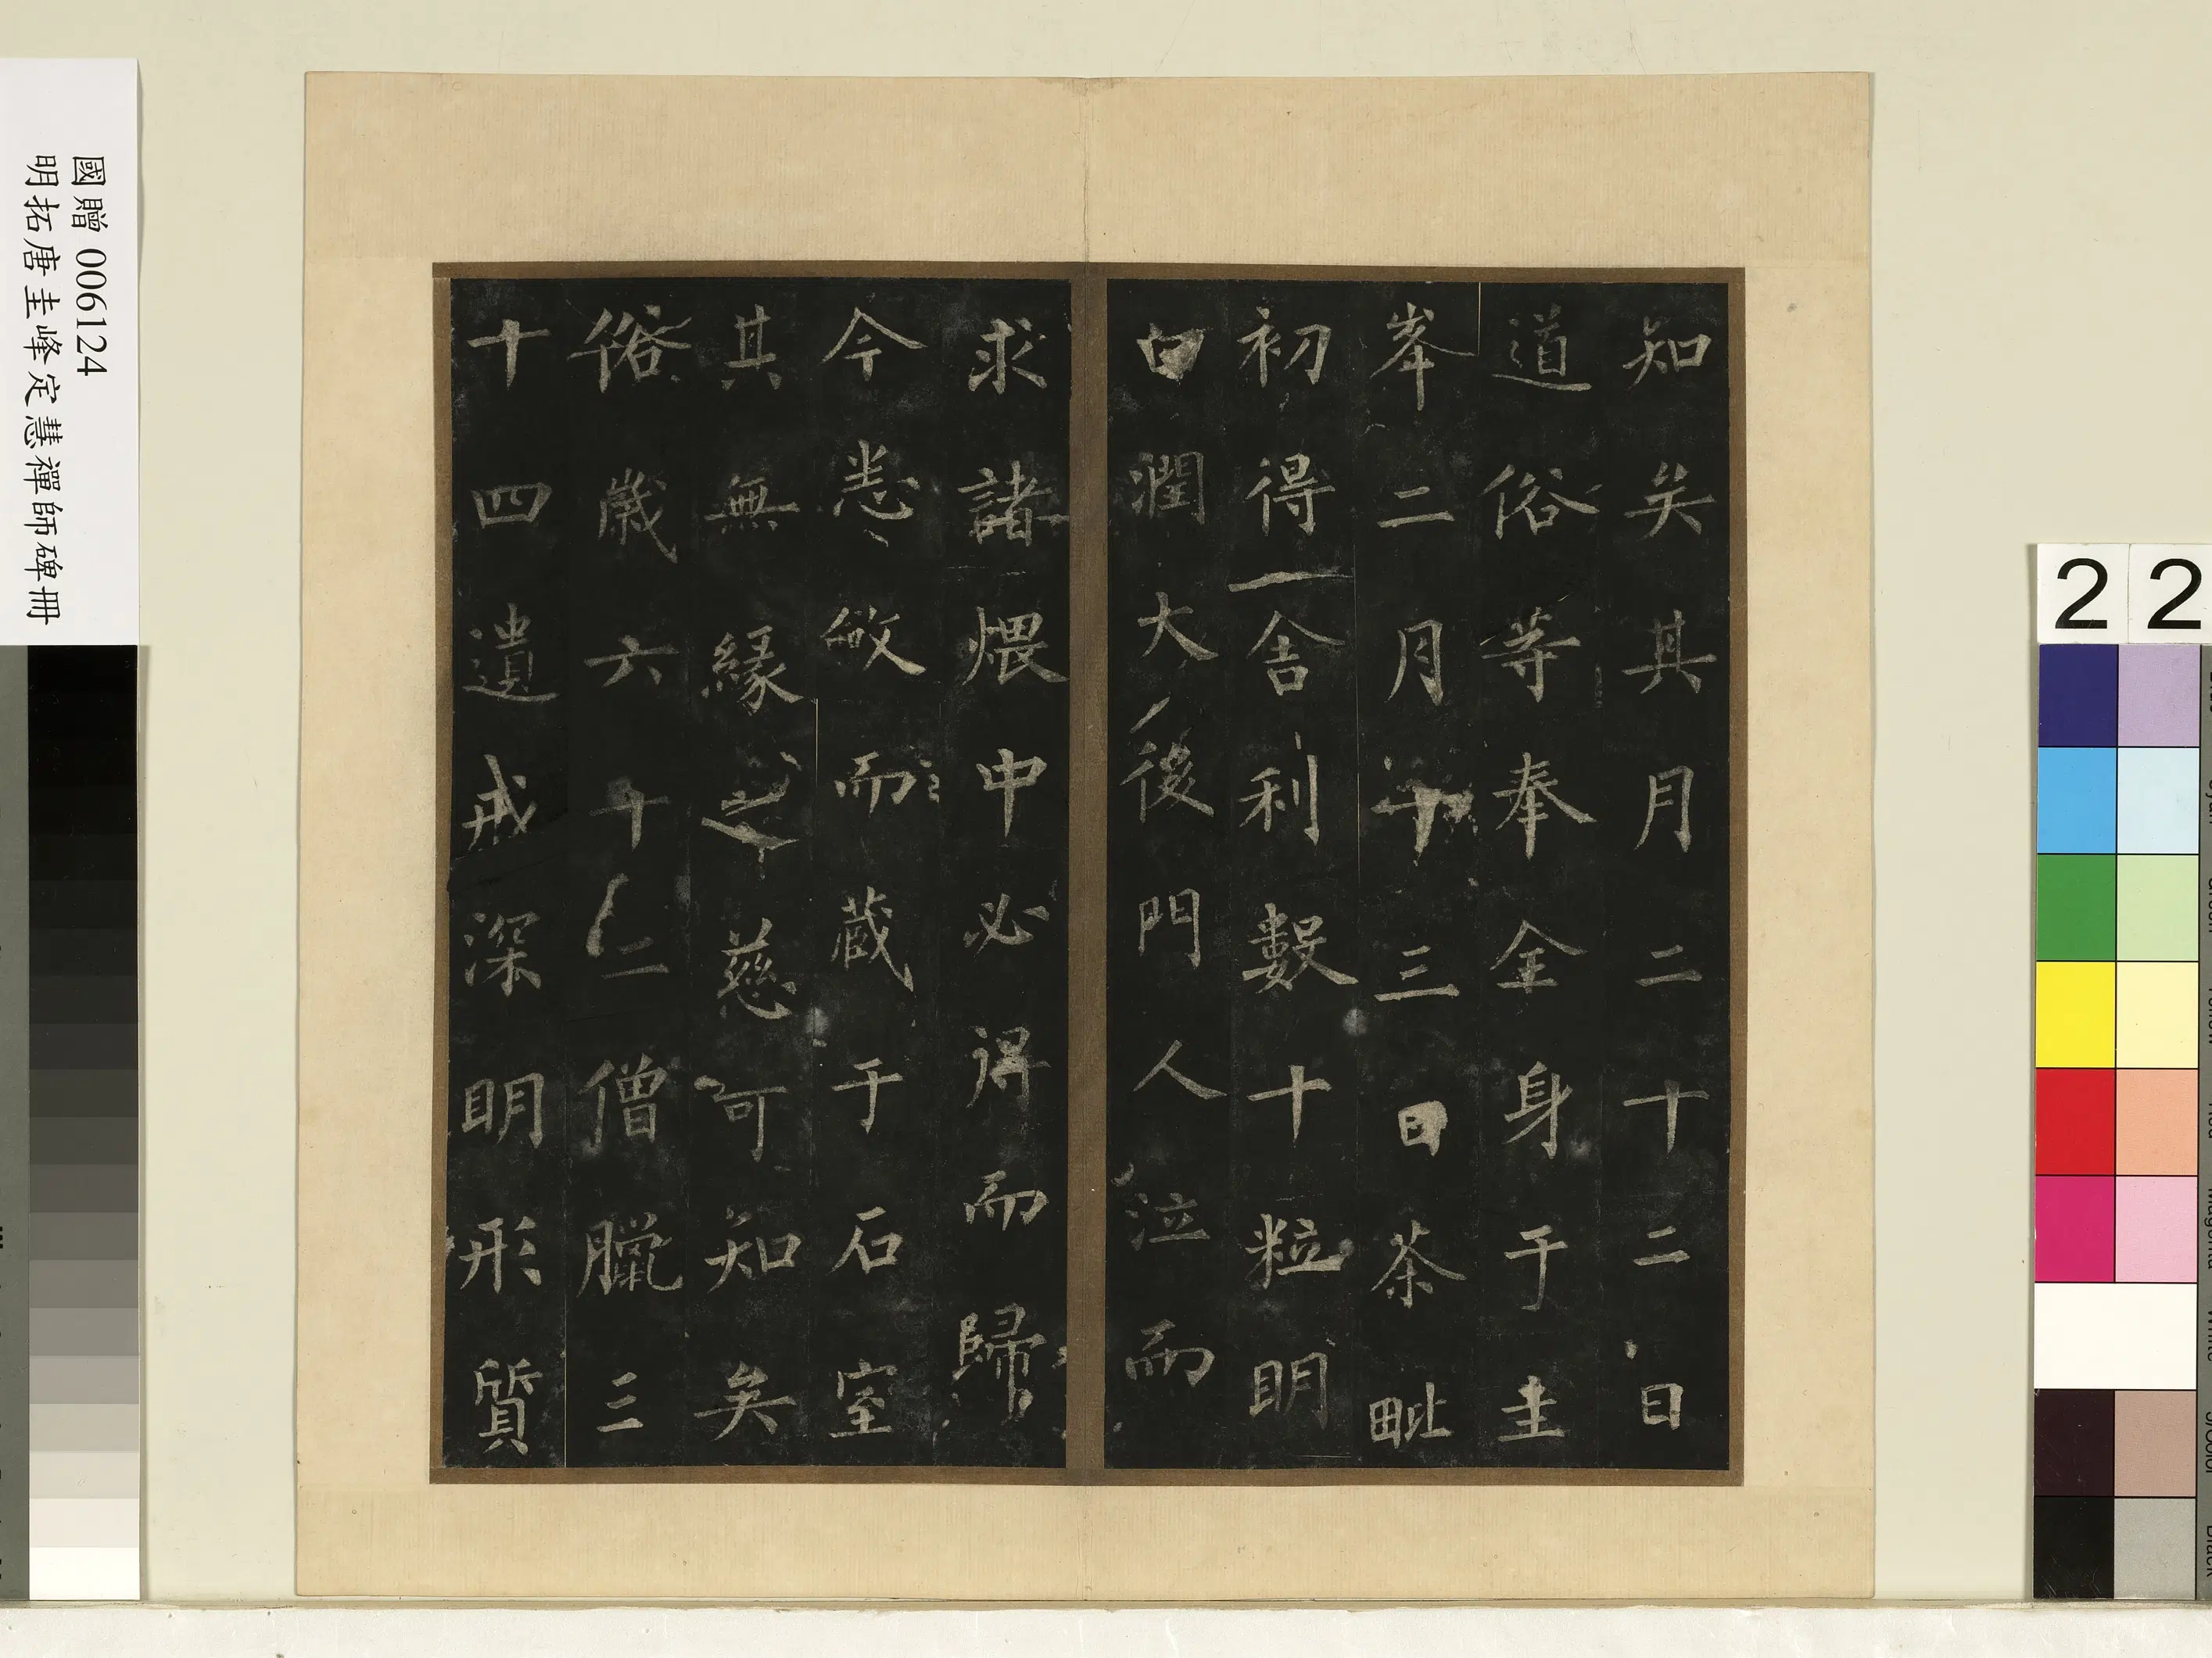 國贈 006124
明拓唐圭峰定慧禪師碑冊
知矣其月二十二日
道俗等奉全身于圭
峯二月十三日荼毗
初得舍利數十粒明
白潤大後門人泣而
求諸煨中必得而歸
今悉斂而藏于石室
其無緣之慈可知矣
俗歲六十二僧臘三
十四遺戒深明形質
2 2